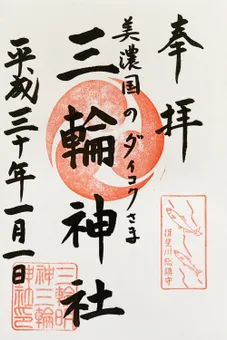 奉拝
揖斐川総鎮守
美濃国のダイコクさま
三輪神社
平成三十年一月一日
三輪明
神三輪
神社印